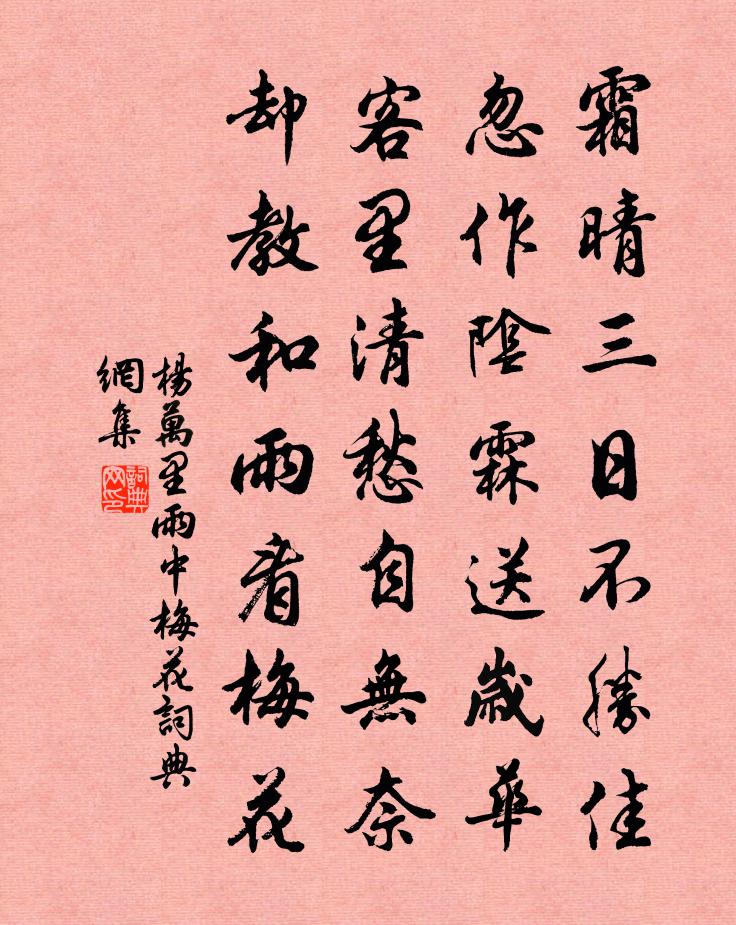 霜晴三日不勝佳
忽作陰霖送歲華
客里清愁自無奈
却教和雨看梅花
楊萬里雨中梅花詞典
網集
詞典
网印